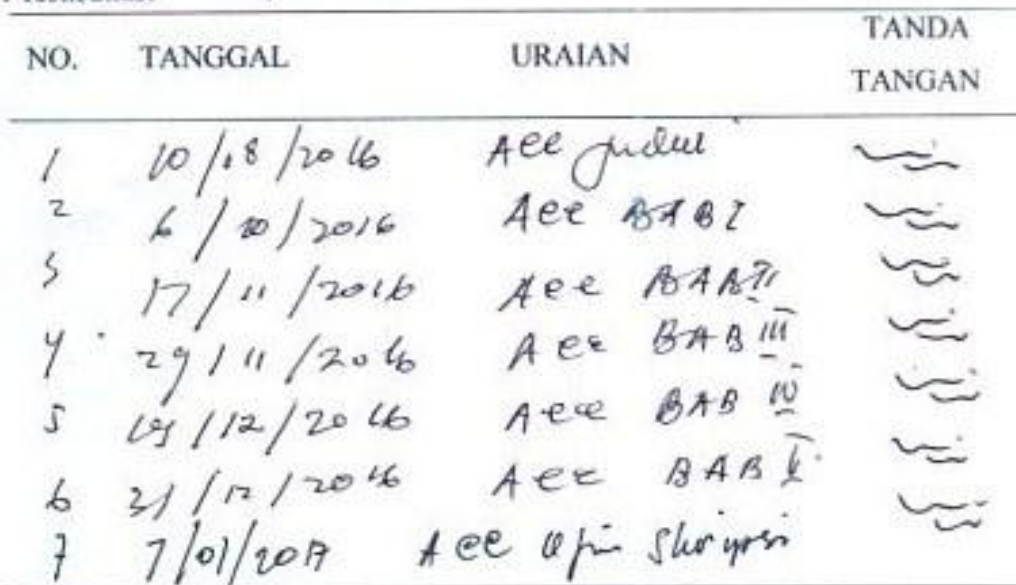 NO. TANGGAL URAIAN TANDA TANGAN
1 10/18/2016 Acc judul
2 6/10/2016 Acc BAB I
3 17/11/2016 Acc BAB II
4 29/11/2016 Acc BAB III
5 /12/2016 Acc BAB IV
6 21/12/2016 Acc BAB V
7 7/01/2017 Acc Ujin Skripsi